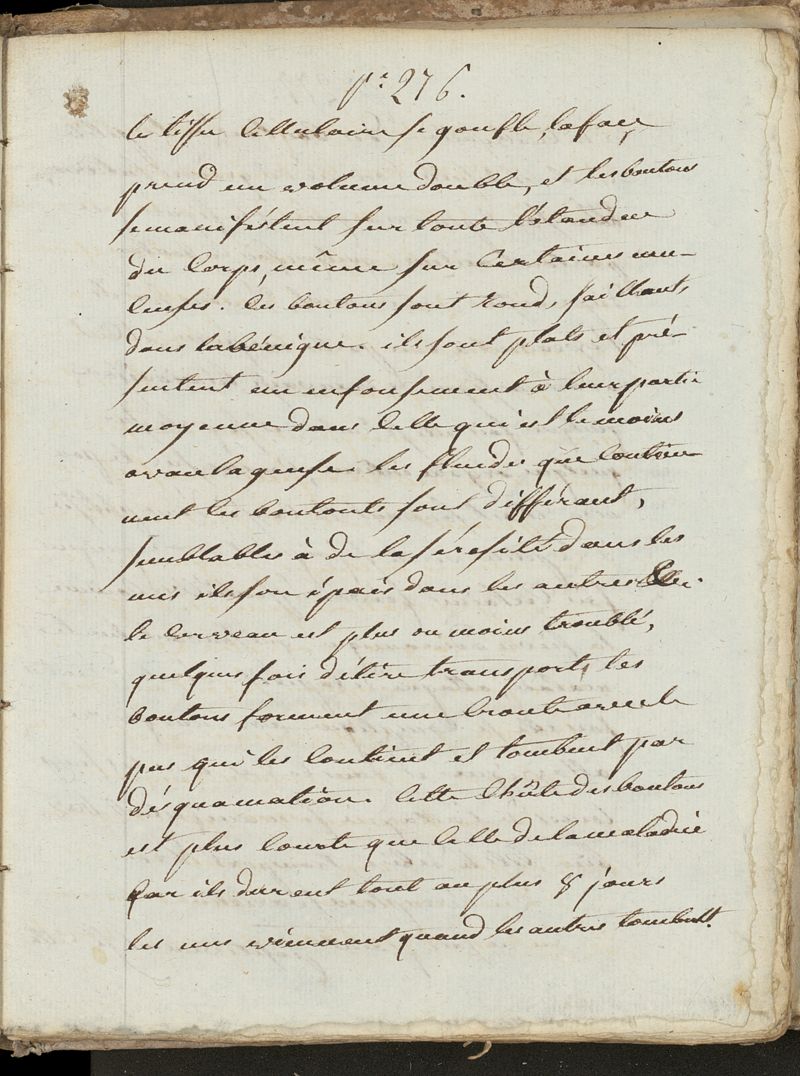 pe 276.
le tissu cellulaire se gonfle, la face
prend un volume double, et les boutons
se manifestent sur toute l'etandue
du corps, même sur certaines mu-
 les boutons sont rond, saillants
dans la bénigne. ils sont plats et pré-
sentent un enfonsement à leur partie
moyenne dans celle qui est le moins
avantageuse. les fluides que contien-
nent les boutonts sont différant,
semblables à de la sérosité dans les
uns ils son épais dans les autres
le cerveau est plus ou moins troublé,
quelques fois délire transport, les
boutons forment une croute avec le
pus qui les contient et tombent par
désquamation. cette chûte des boutons
est plus courte que celle de la maladie
car ils durent tout au plus 8 jours
les uns viennent quand les autres tombent.